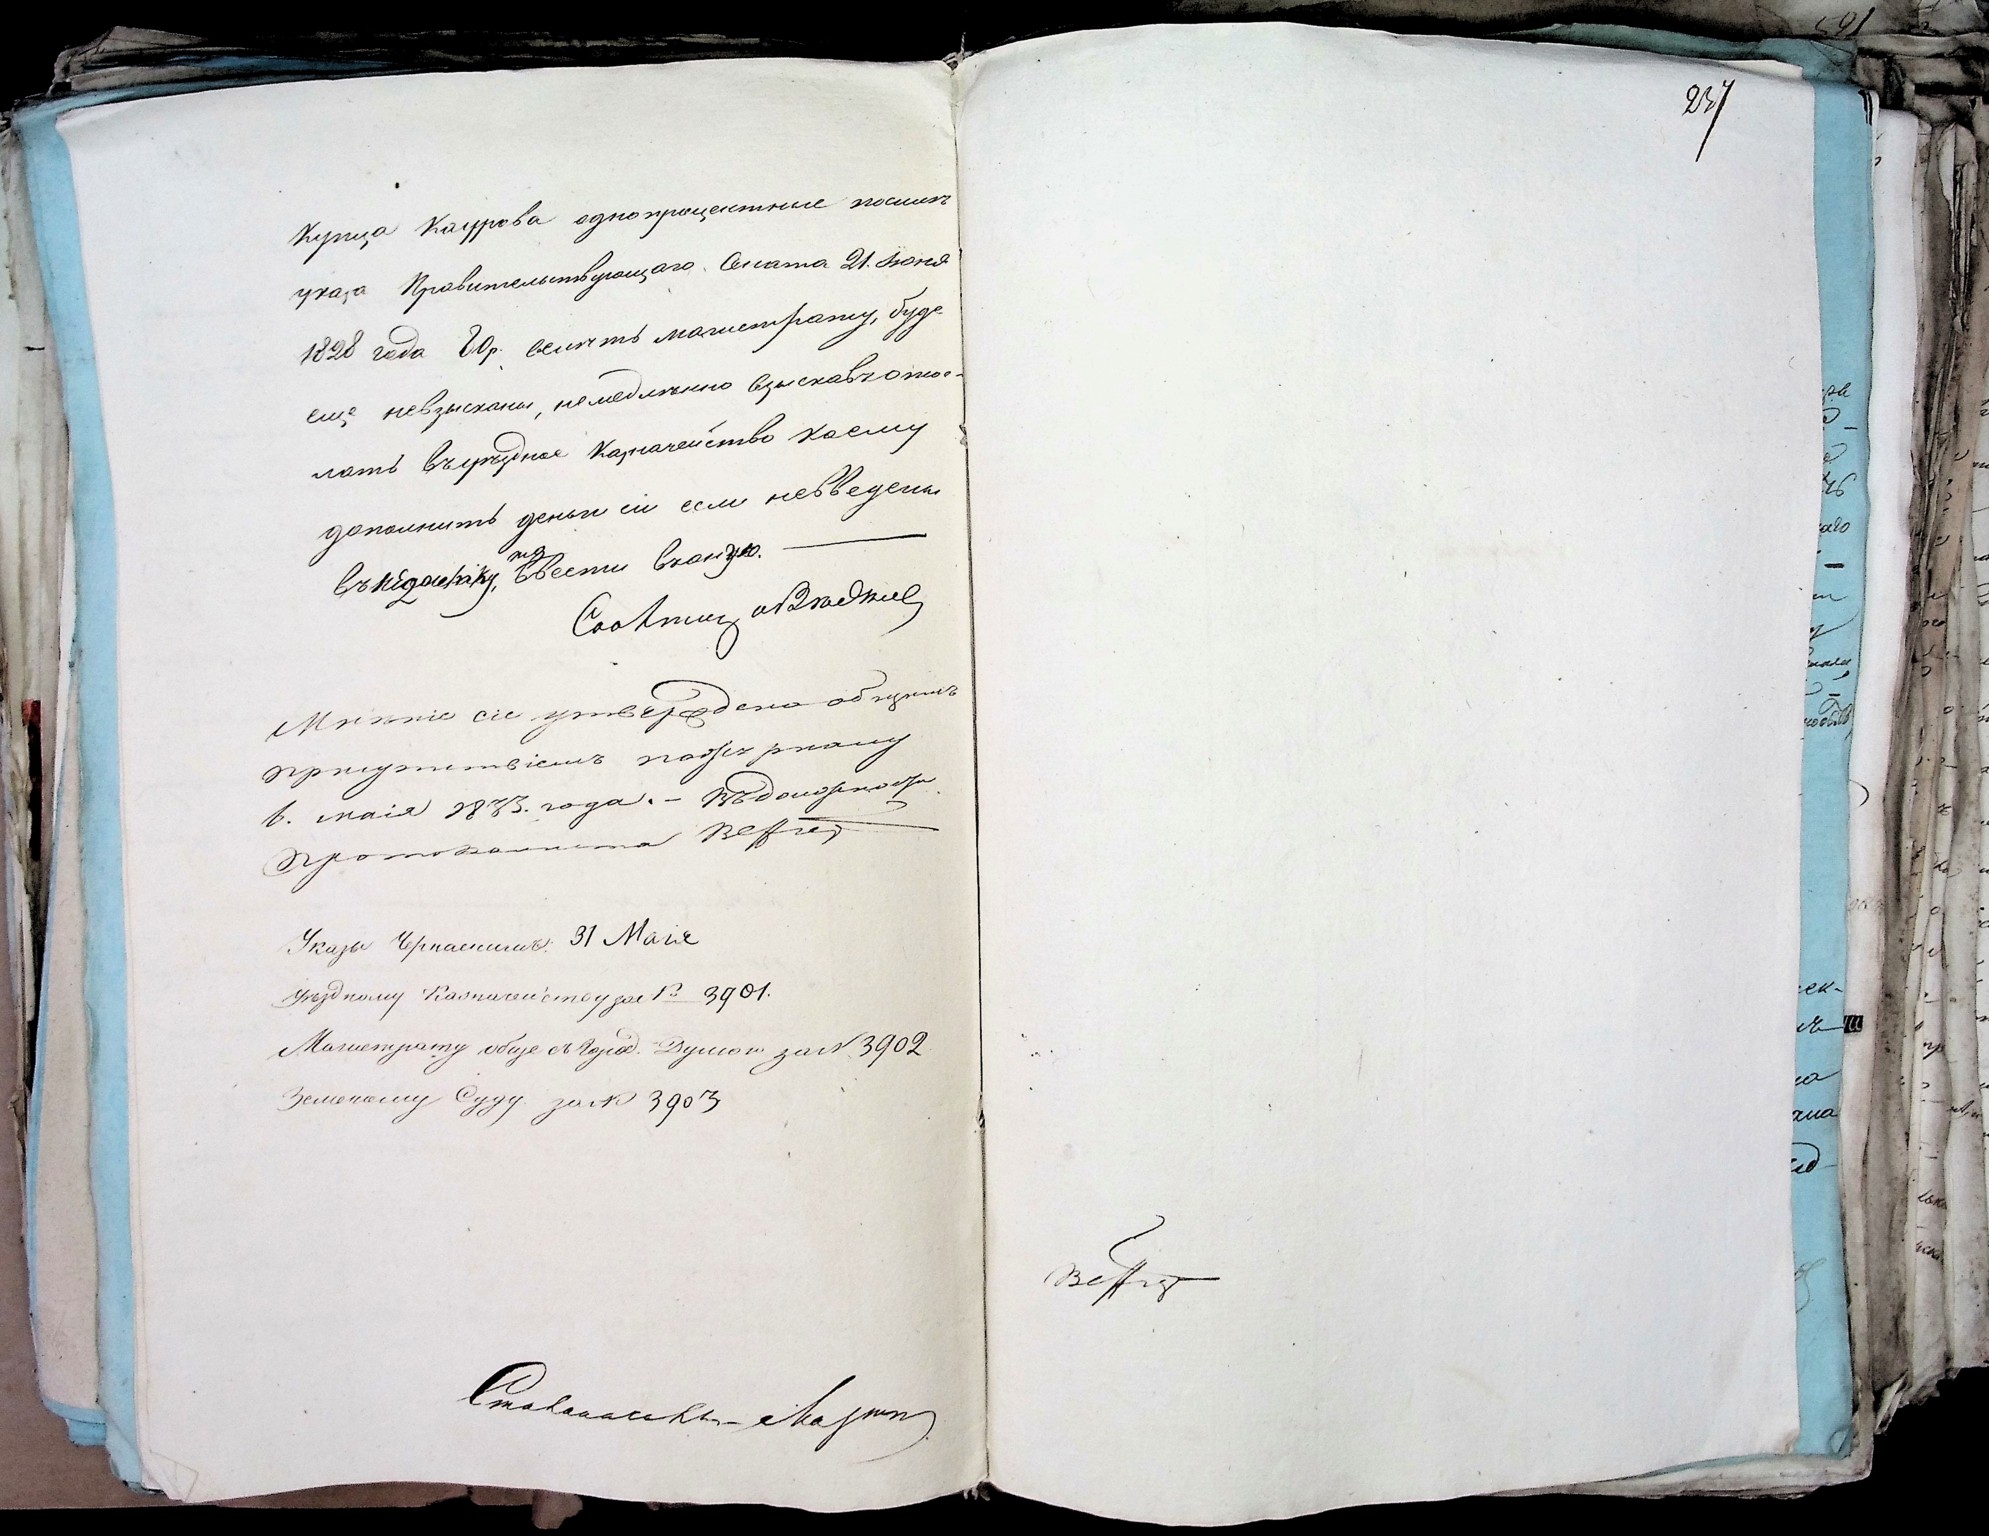 купца Каурова однопроцентные посилѣ
указа Правительствующаго Сената 21. Іюня
1828 года 60 р. велить магистрату, буде
еще невзысканы, немедленно взыскавъ отос-
лать въ уѣздное казначейство коему
дополнить деньги сіи если невведены
въ недоимку, то ввести воную.
Мнѣніе сіе утверждено общимъ
присутствіемъ пожурналу
маія 1833. года. — Вдолжности
протоколиста
Указы Черниговск. 31 Маія
уѣздному Казначейству за № 3901.
Магистрату обще съ Город. Думою за № 3902
Земскому Суду за № 3903
237